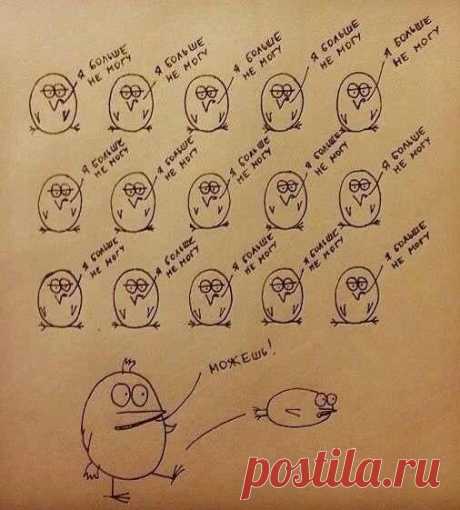 Я БОЛЬШЕ
НЕ МОГУ
Я БОЛЬШЕ
НЕ МОГУ
Я БОЛЬШЕ
НЕ МОГУ
Я БОЛЬШЕ
НЕ МОГУ
Я БОЛЬШЕ
НЕ МОГУ
Я БОЛЬШЕ
НЕ МОГУ
Я БОЛЬШЕ
НЕ МОГУ
Я БОЛЬШЕ
НЕ МОГУ
Я БОЛЬШЕ
НЕ МОГУ
Я БОЛЬШЕ
НЕ МОГУ
Я БОЛЬШЕ
НЕ МОГУ
Я БОЛЬШЕ
НЕ МОГУ
Я БОЛЬШЕ
НЕ МОГУ
Я БОЛЬШЕ
НЕ МОГУ
Я БОЛЬШЕ
НЕ МОГУ
МОЖЕШЬ!
postila.ru